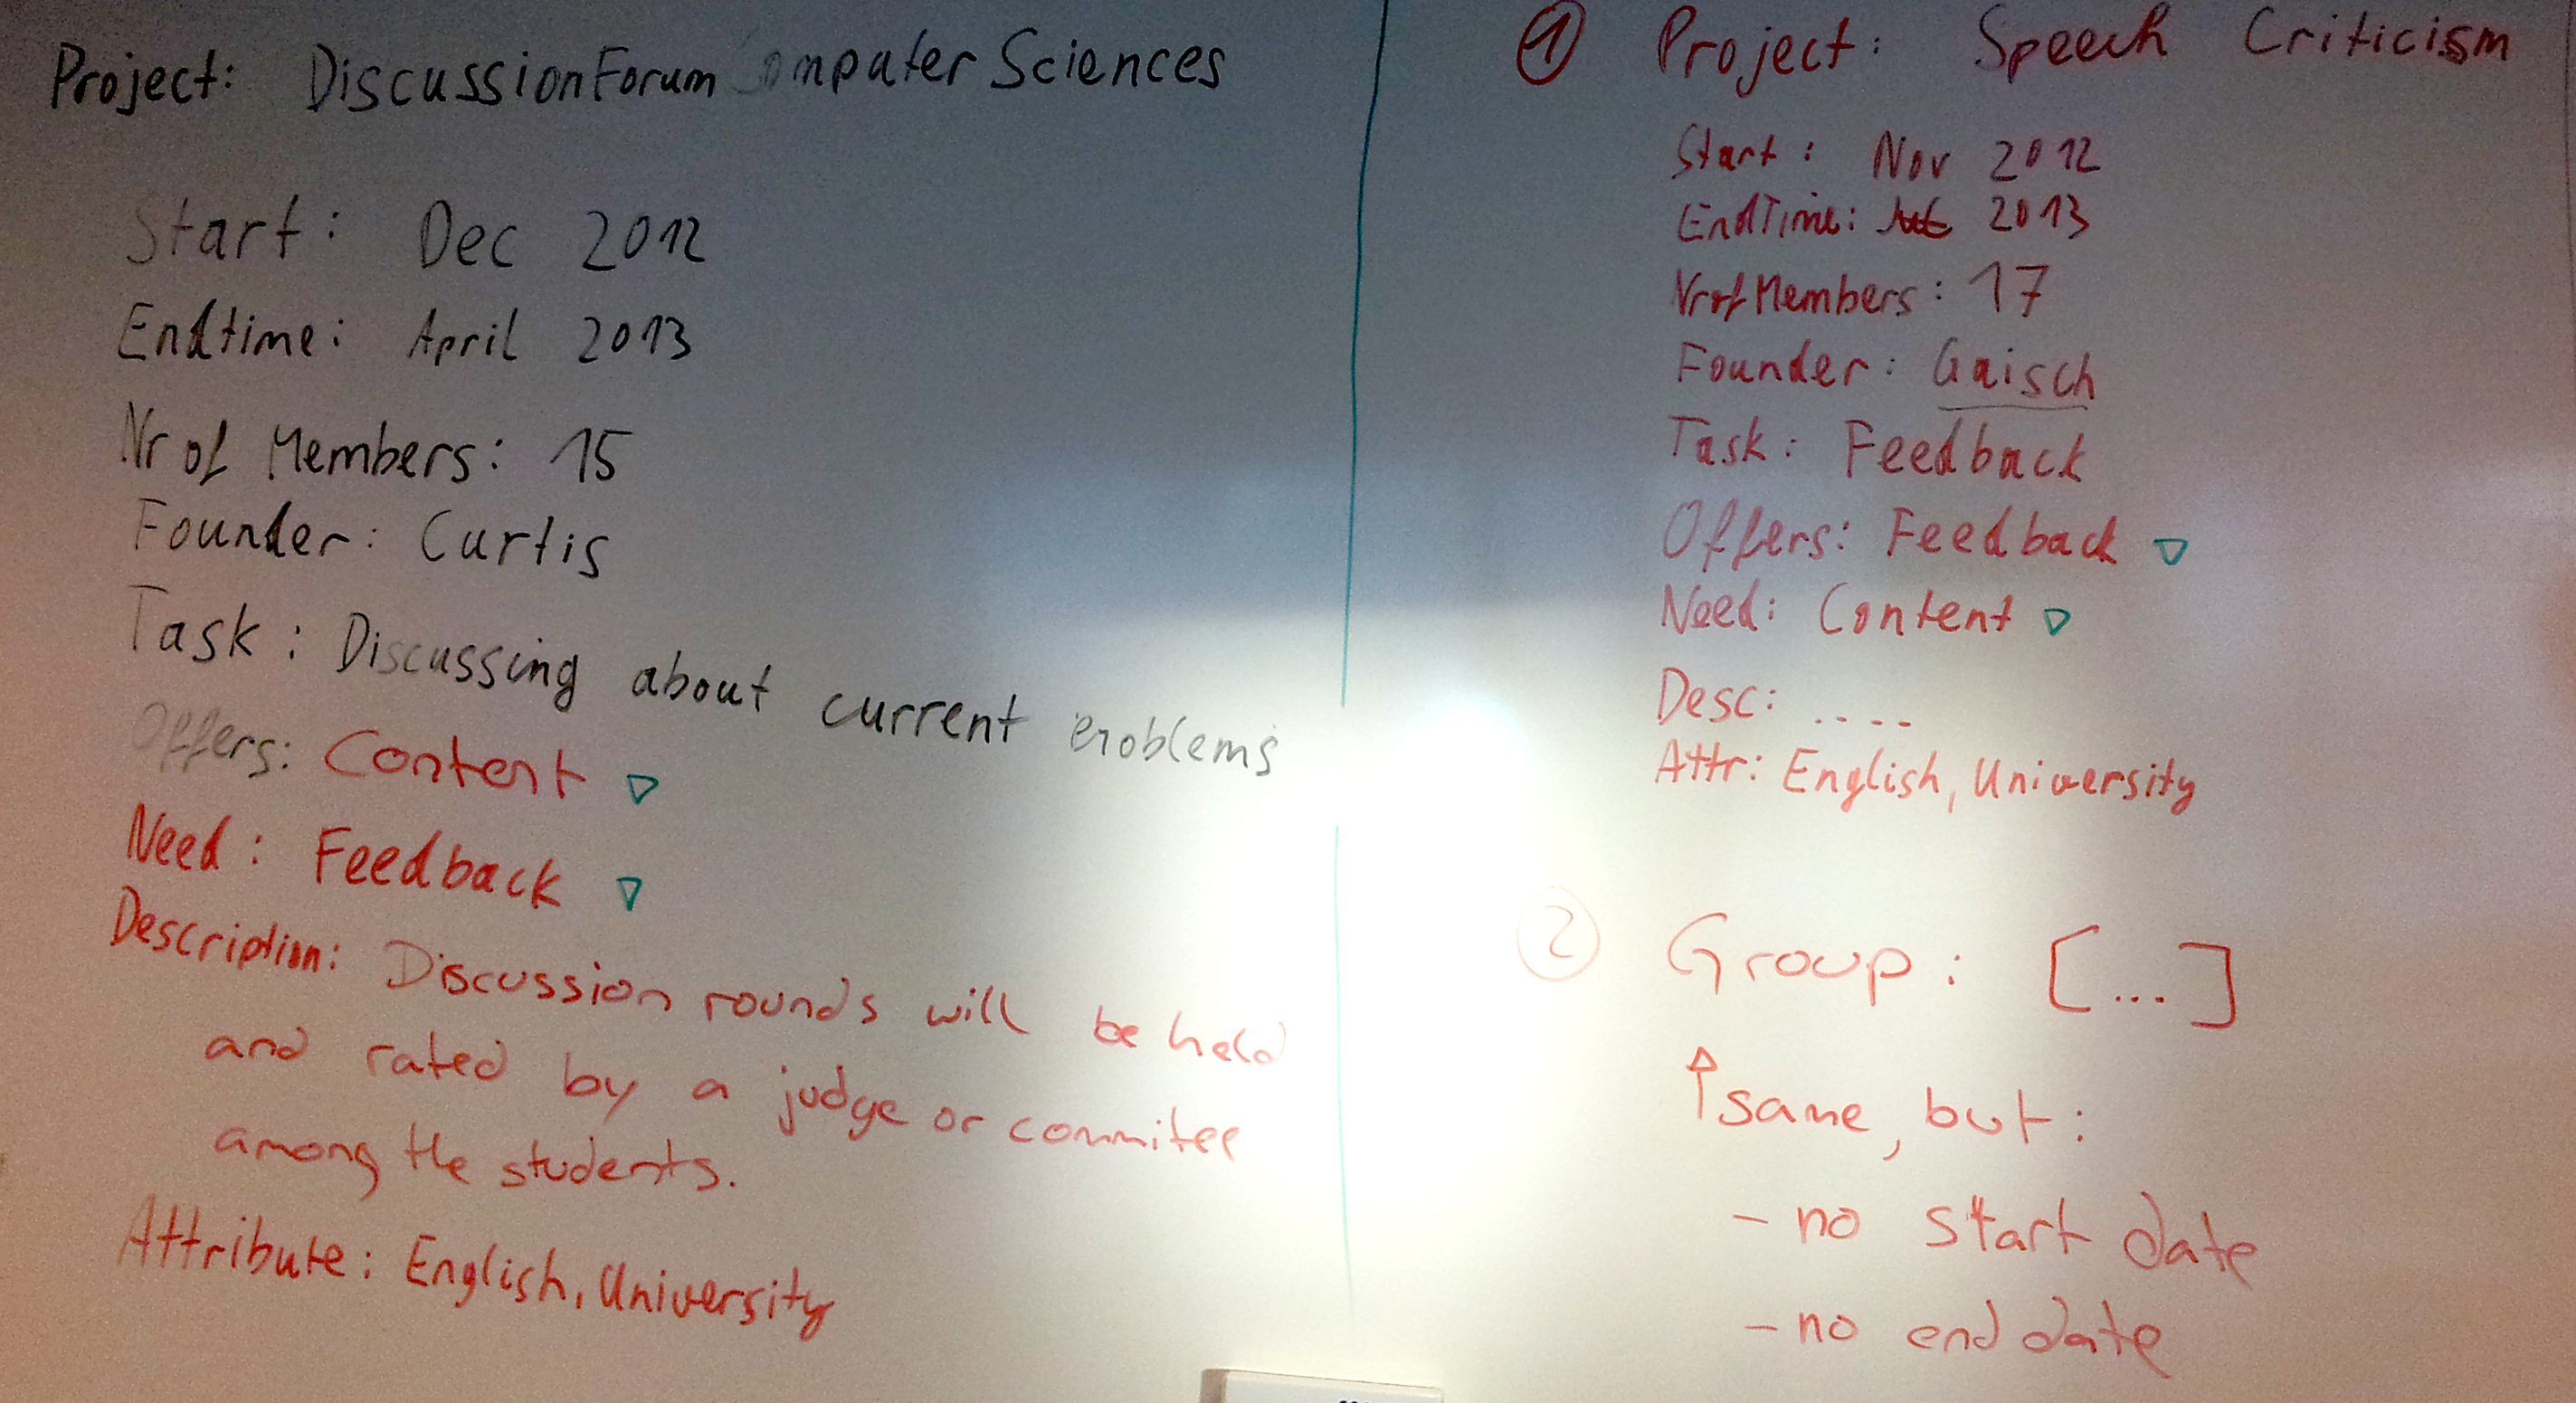 Project: DiscussionForum Computer Sciences
Start: Dec 2012
Endtime: April 2013
Nr of Members: 15
Founder: Curtis
Task: Discussing about current problems
Offers: Content ▽
Need: Feedback ▽
Description: Discussion rounds will be held
and rated by a judge or commitee
among the students.
Attribute: English, University
① Project: Speech Criticism
Start: Nov 2012
EndTime: 2013
Nr of Members: 17
Founder: Gaisch
Task: Feedback
Offers: Feedback ▽
Need: Content ▽
Desc: ....
Attr: English, University
② Group: [...]
↑ same, but:
- no start date
- no end date